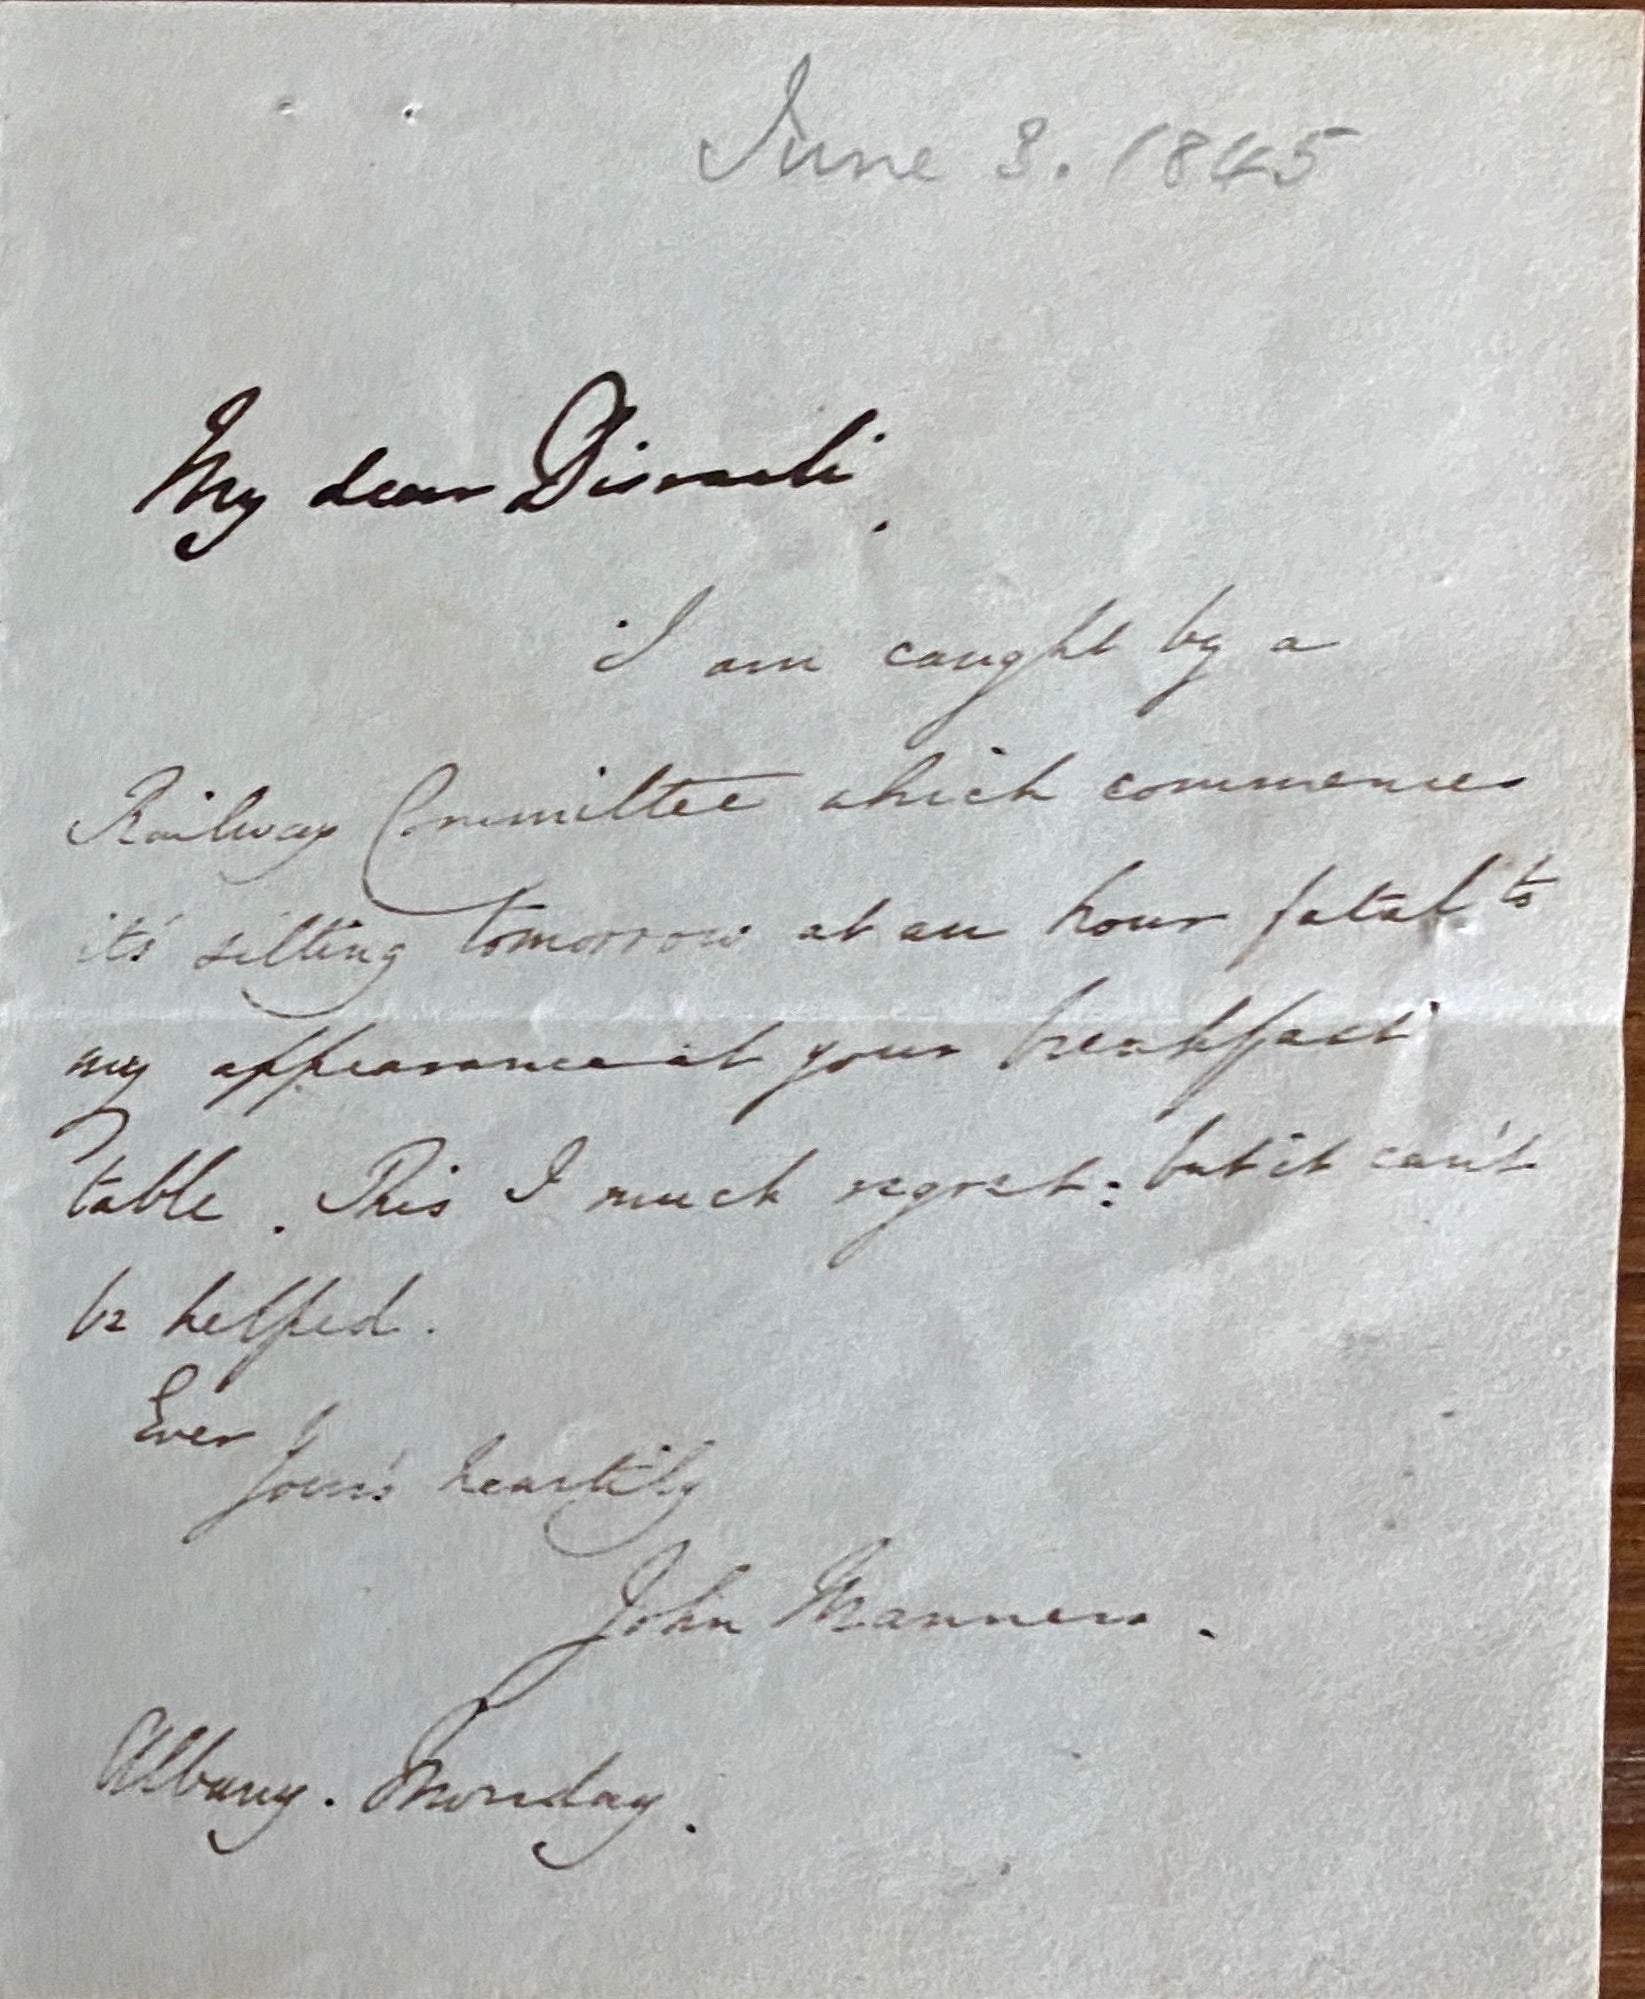 June 3. 1845
My dear Disraeli.
I am caught by a
Railway Committee which commences
it's sitting tomorrow at an hour fatal to
my appearance at your breakfast
table. This I much regret: but it can't
be helped.
Ever
Your's heartily
John Manners.
Albany. Monday.